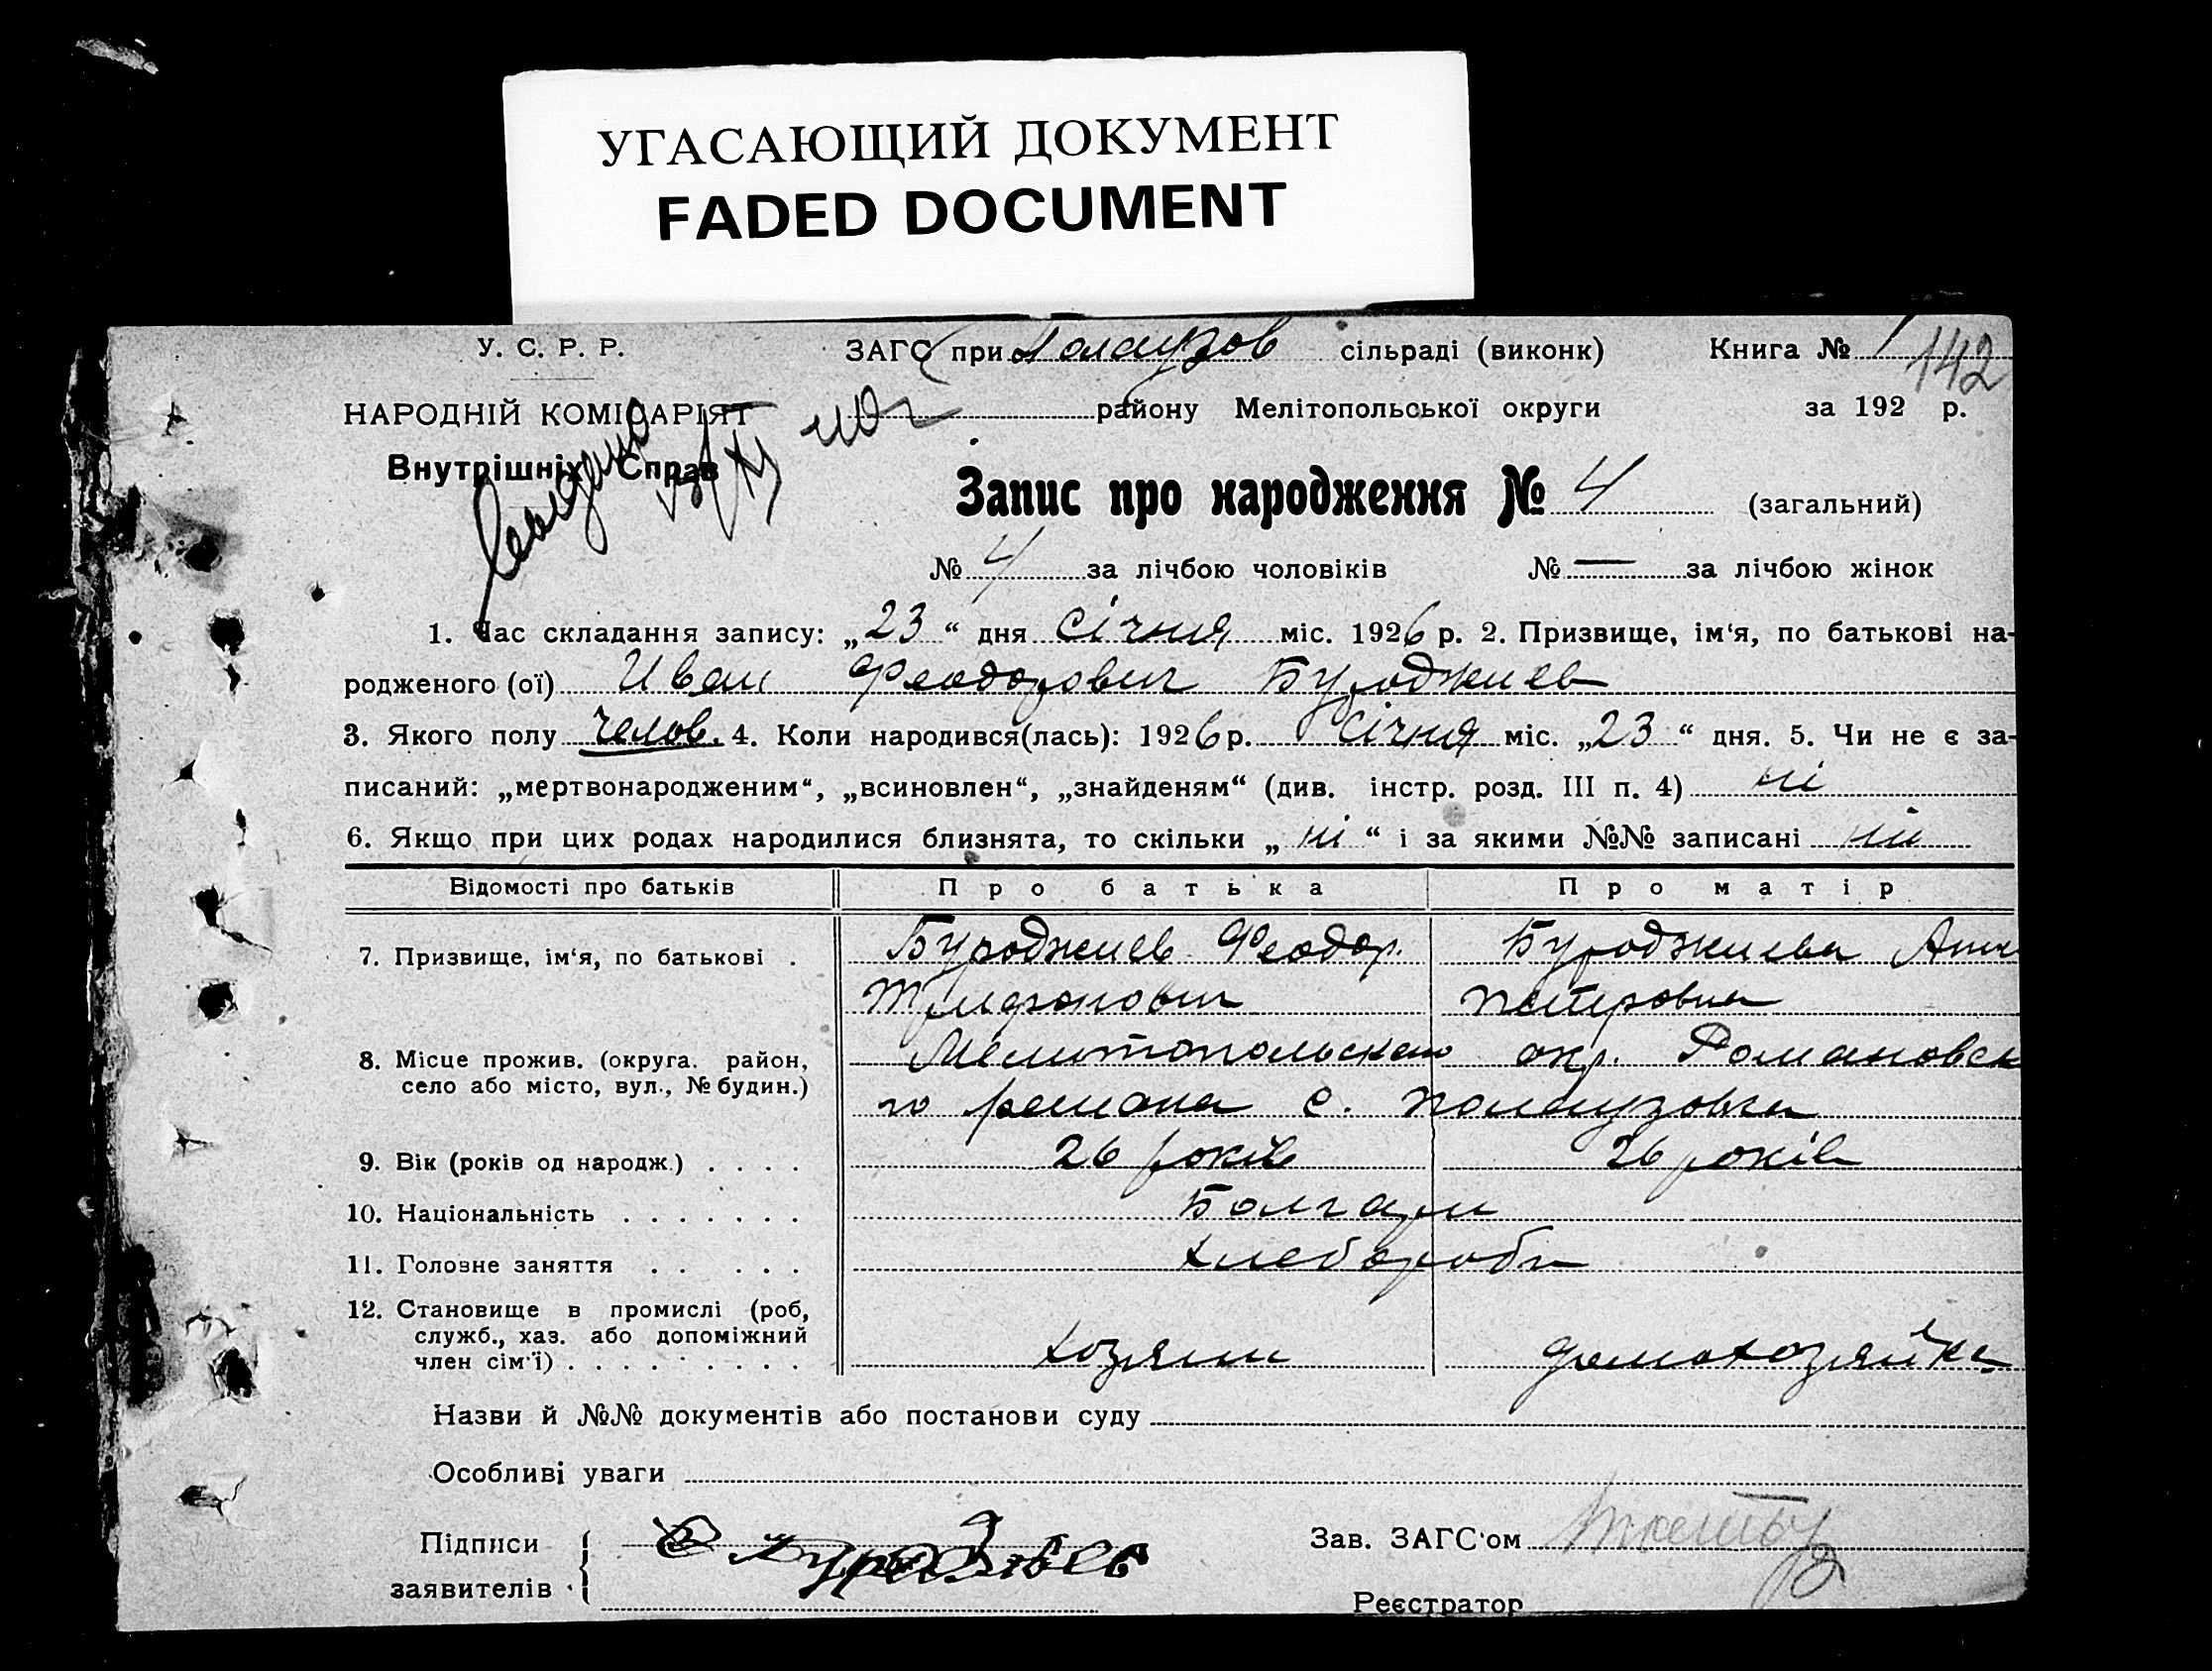 УГАСАЮЩИЙ ДОКУМЕНТ
FADED DOCUMENT
У. С. Р. Р. ЗАГС при Палаузов сільраді (виконк) Книга № 1 142
НАРОДНІЙ КОМІСАРІЯТ району Мелітопольської округи за 192 р.
Внутрішніх Справ
Запис про народження № 4 (загальний)
№ 4 за лічбою чоловіків № — за лічбою жінок
1. Час складання запису: „23“ дня січня міс. 1926 р. 2. Призвище, ім‘я, по батькові на-
родженого (ої) Иван Феодорович Буроджиев
3. Якого полу челов. 4. Коли народився(лась): 1926 р. січня міс. „23“ дня. 5. Чи не є за-
писаний: „мертвонародженим“, „всиновлен“, „знайденям“ (див. інстр. розд. III п. 4) ні
6. Якщо при цих родах народилися близнята, то скільки „ні“ і за якими №№ записані ни
Відомості про батьків Про батька Про матір
7. Призвище, ім‘я, по батькові . Буроджиев Феодор. Буроджиева Анн
Трифонович Петровна
8. Місце прожив. (округа. район, Мелитопольскаго окр. Романовск
село або місто, вул., № будин.) го раиона с. Палаузовка
9. Вік (років од народж.) . . . . 26 років 26 років
10. Національність . . . . . . . Болгари
11. Головне заняття . . . . . Хлебороби
12. Становище в промислі (роб,
служб., хаз. або допоміжний
член сім‘ї) . . . . . . . . . хозяин домохозяйка
Назви й №№ документів або постанови суду
Особливі уваги
Підписи Буроджиев Зав. ЗАГС‘ом
заявителів
Реєстратор